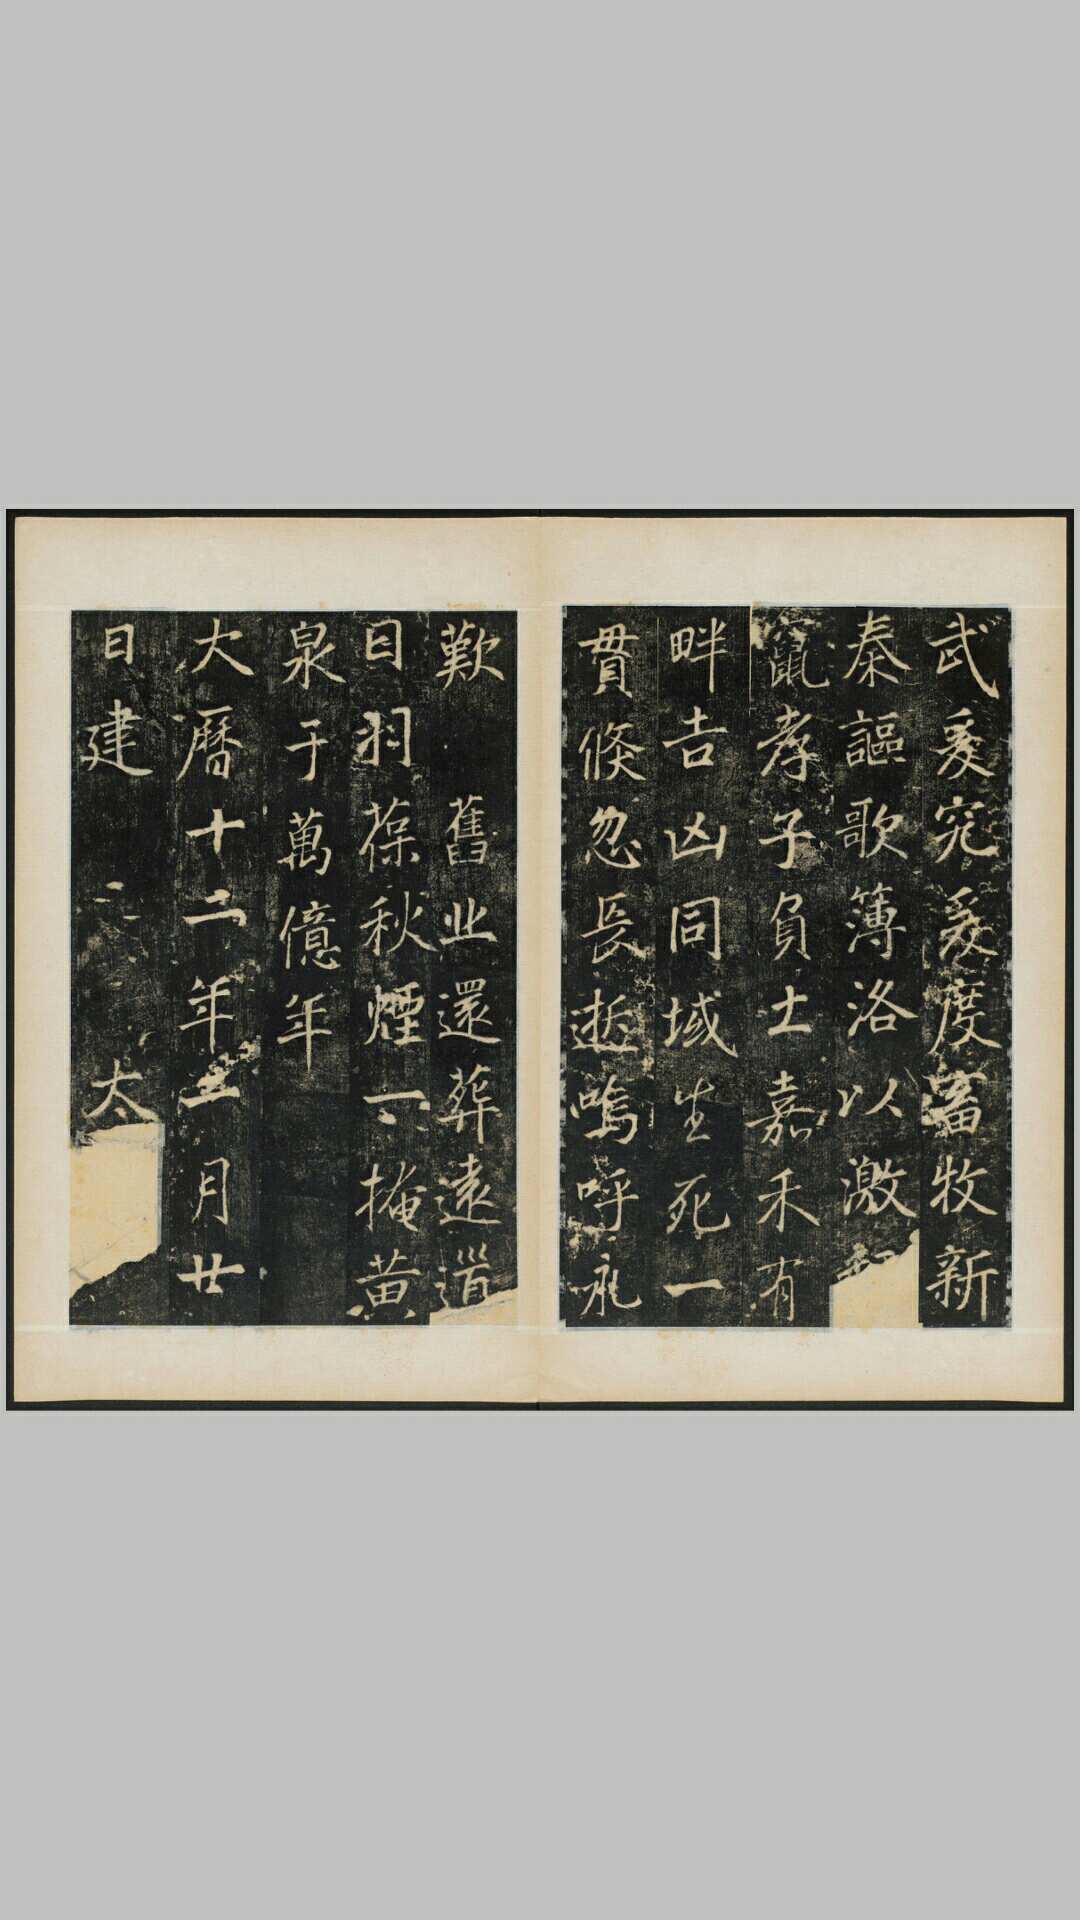 武爰究爰度畜牧新
秦謳歌簿洛以激
鼠孝子負土嘉禾有
畔吉凶同域生死一
貫倏忽長逝嗚呼永
歎 舊业還葬遠道
日羽葆秋煙一掩黄
泉于萬億年
大曆十二年五月廿
日建 太